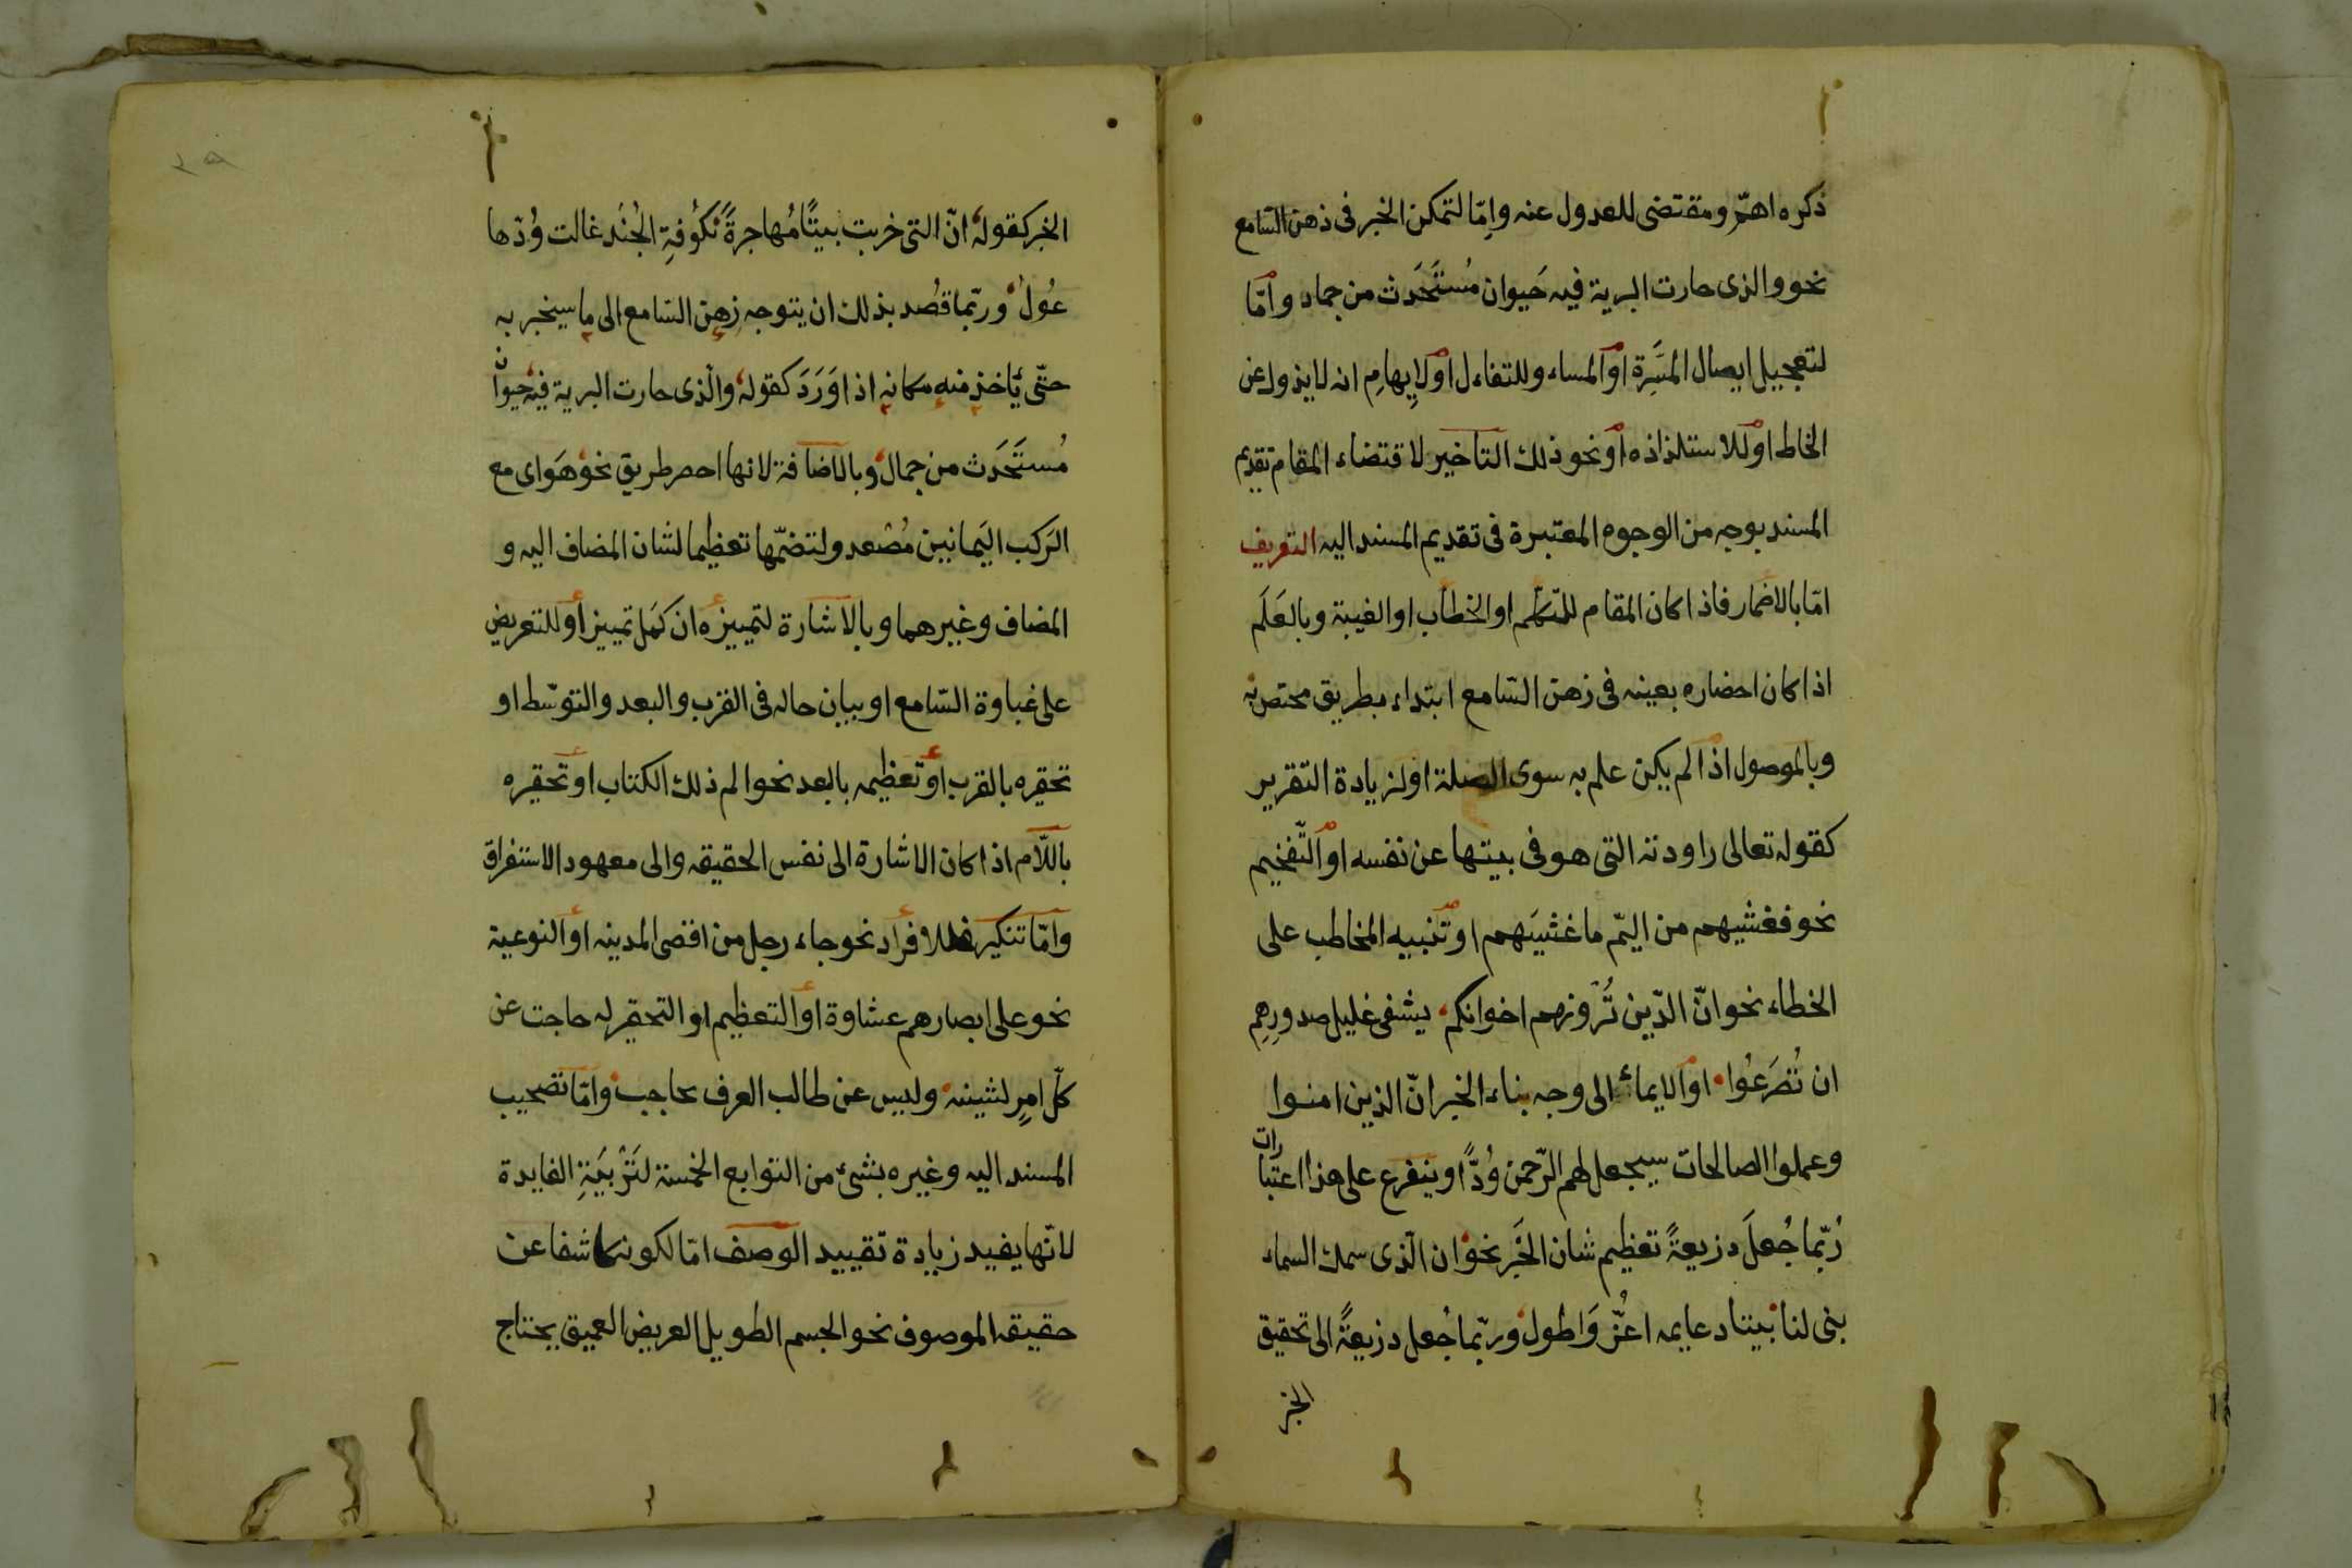 ذكره اهمّ ومقتضى للعدول عنه وإمّا لتمكن الخبر فى ذهن السّامع
نحو والذى حارت البرية فيه حَيوان مُستَحَدَث من جماد وامّا
لتعجيل ايصال المَسَرِّة او المساء وللتفاءل او لإِيهامِ انه لا يزول عن
الخاطر او للاستلذاذه او نحو ذلك التاخير لاقتضاء المقام تقديم
المسند بوجه من الوجوه المعتبرة فى تقديم المسند اليه التعريف
امّا بالاضمار فاذا كان المقام للتكلّم او الخطاب او الغيبة وبالعَلَم
اذا كان احضاره بعينه فى زهن السّامع ابتداء بطريق مختص به
وبالموصول اذا لم يكن علم به سوى الصلة او لزيادة التقرير
كقوله تعالى راودته التى هو فى بيتها عن نفسه او التّفخيم
نحو فغشيهم من اليّم ما غشيَهم او تنبيه المخاطب على
الخطاء نحو انّ الذّين تُرَونهم اخوانكم يشفى غليل صدورِهِم
ان تُصَرَعُوا او الايماء الى وجه بناء الخبر انّ الذين امنوا
وعملوا الصالحات سيجعل لهم الرّحمن وُدًّا ويتفرع على هذا اعتبارات
رُبّما جُعلَ دزيعةً تعظيم شان الخَبر نحو ان الّذى سمك السماء
بنى لنا بيتا دعايمه اعُزّ وَاطول وربّما جُعل دزيعةً الى تحقيق
الخبر
الخبر كقوله انّ التى ضربت بيتًا مُهاجرةً بكُوفةِ الجُنَد غالت وُدّها
غُول وربّما قصُد بذلك ان يتوجه زهن السّامع الى ما سيخبر به
حتّى يٌاخذ منه مكانه اذا وَرَدَ كقوله والّذى حارت البرية فيه حيوان
مُستَحَدَث من جمال وبالاضافة لانها احصر طريق نحو هَواى مع
الرَكب اليَمانين مُصْعد ولتضمّها تعظيما لشان المضاف اليه و
المضاف وغيرهما وبالاشارة لتمييزه ان كَمَل تمييز او للتعريض
على غباوة السّامع او بيان حاله فى القرب والبعد والتوسّط او
تحقيره بالقرب او تعظيمه بالبعد نحو الم ذلك الكتاب او تحقيره
باللّام اذا كان الاشارة الى نفس الحقيقه والى معهود الاستغراق
وامّا تنكيره فللافراد نحو جاء رجل من اقصى المدينه او النوعية
نحو على ابصارهم عشاوة او التعظيم او التحقير له حاجت عن
كلّ امرٍ لشينه وليس عن طالب العرف حاجب وامّا تصحيب
المسند اليه وغيره بشئ من التوابع الخمسة لتَرْبيَةِ الفايدة
لانّها يفيد زيادة تقييد الوصف امّا لكونه كاشفا عن
حقيقه الموصوف نحو الجسم الطويل العريض العميق يحتاج